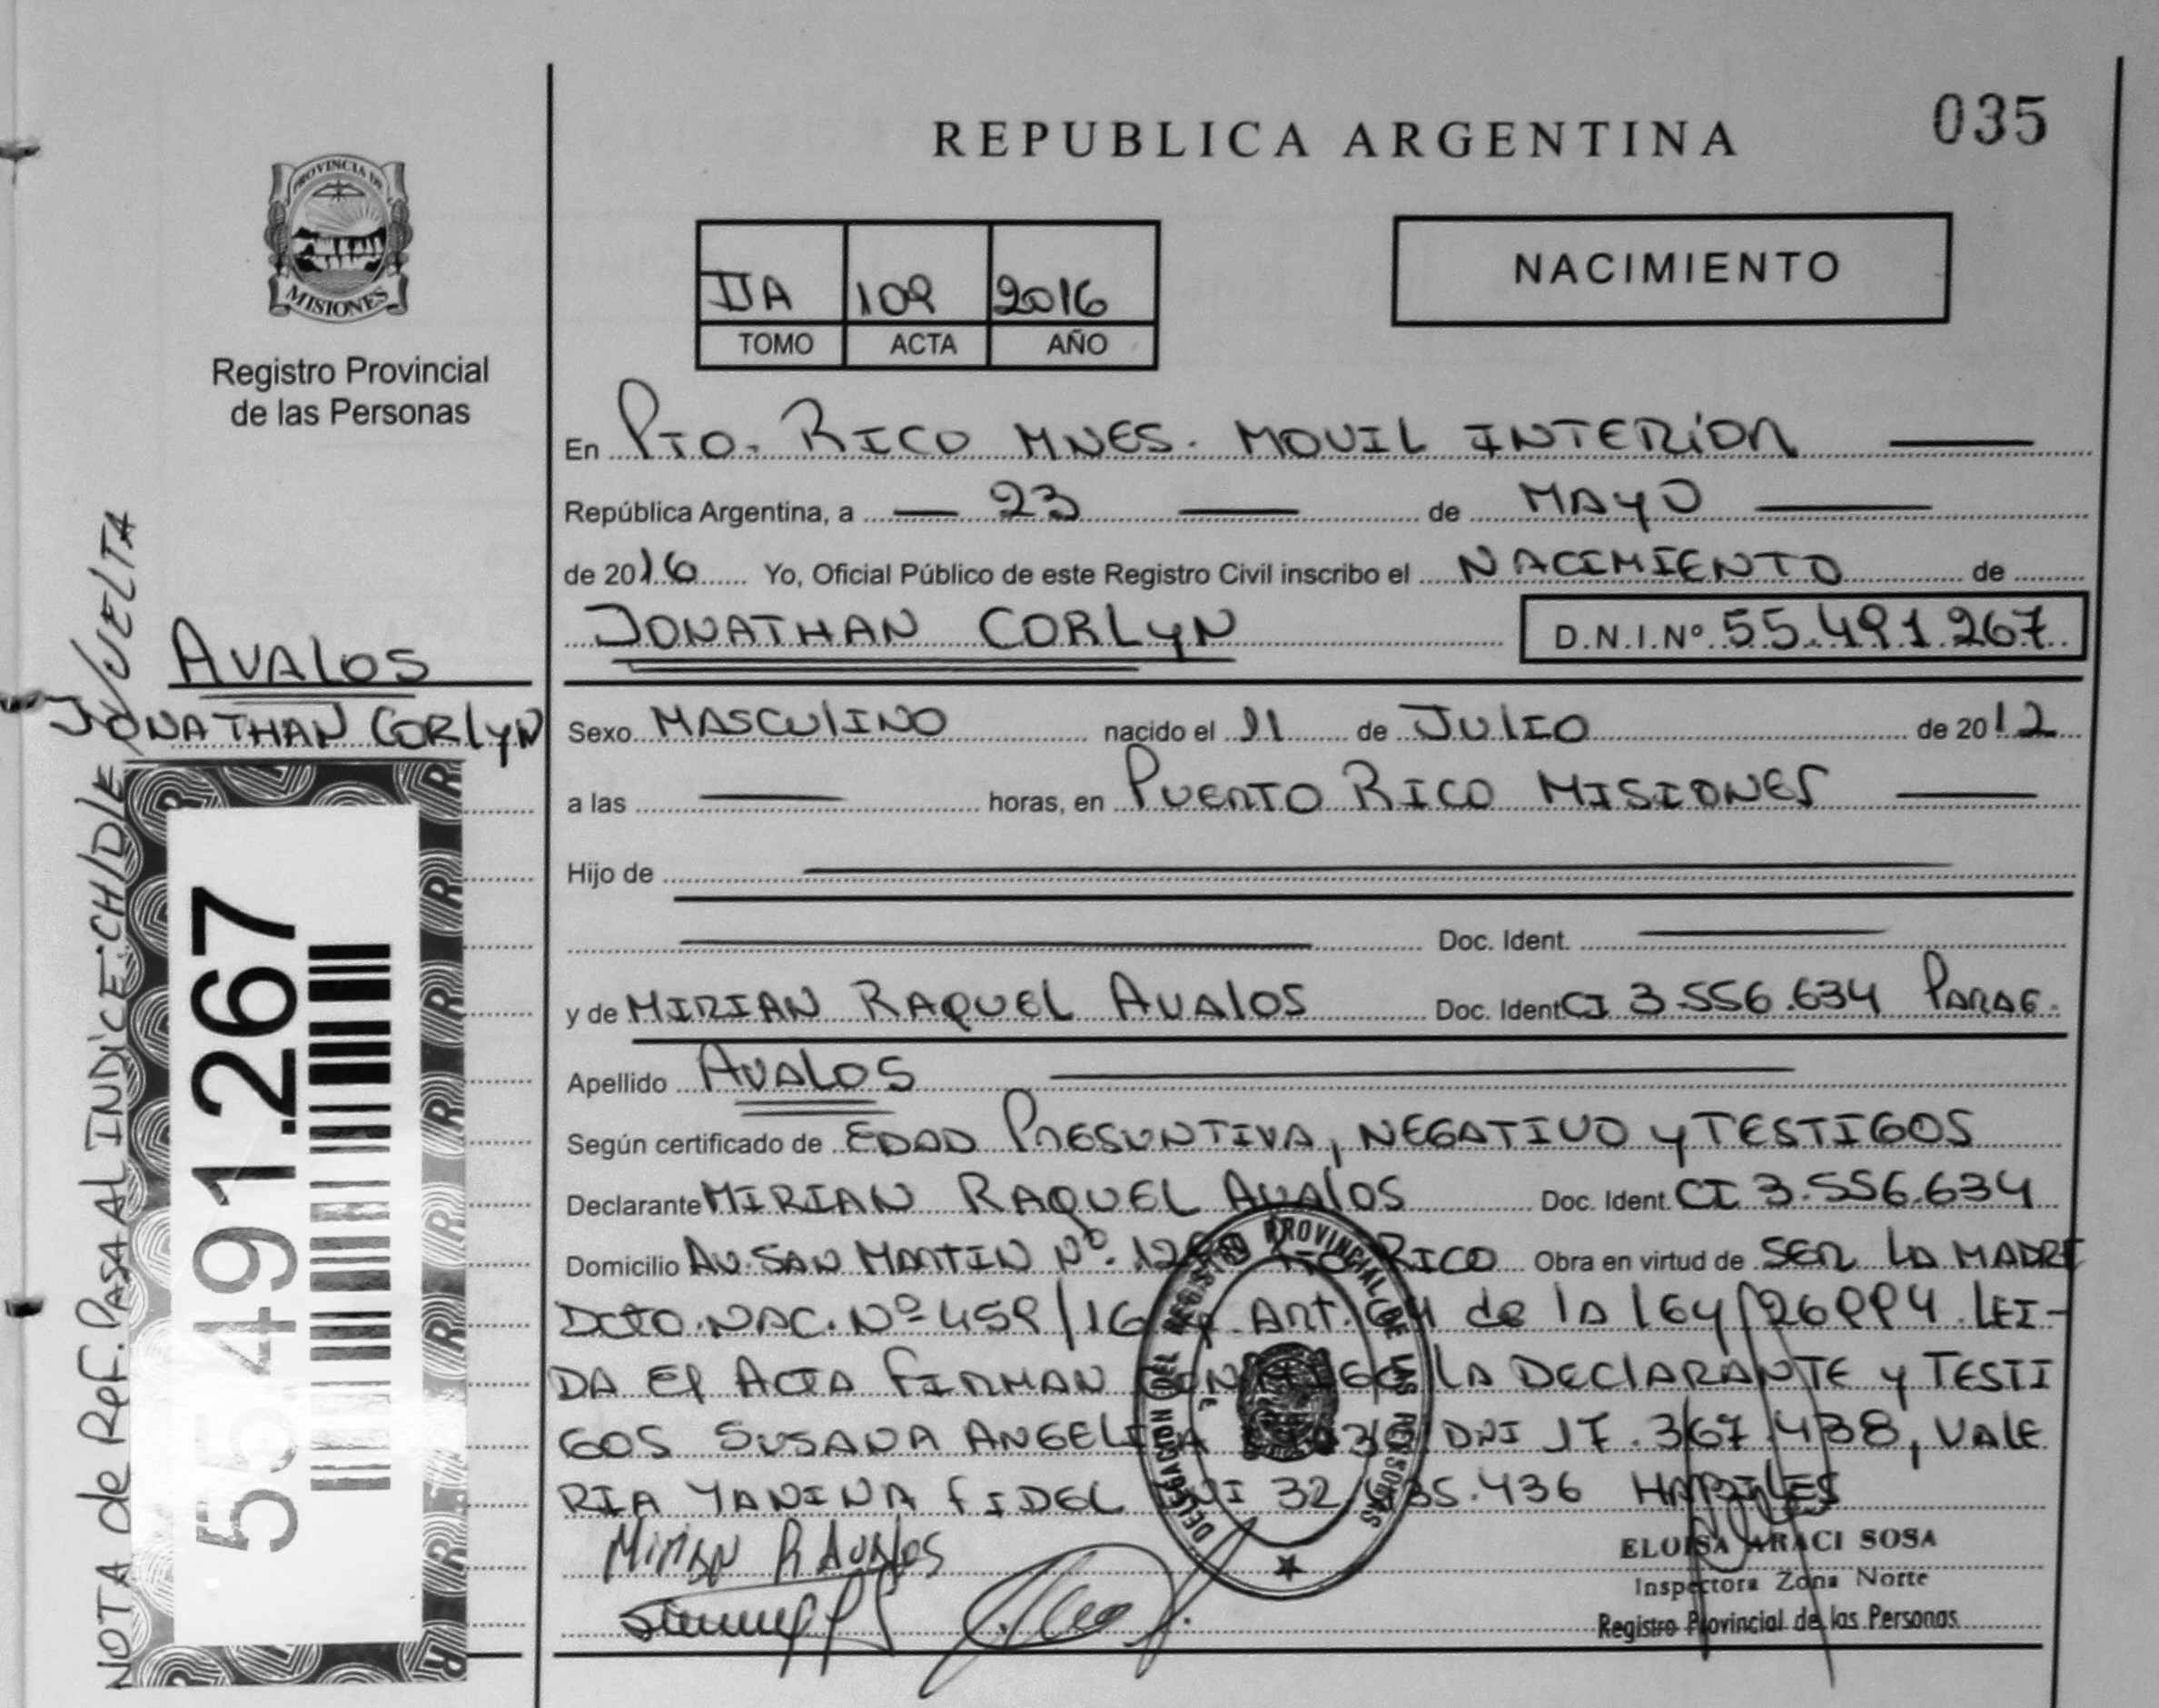 REPUBLICA ARGENTINA
035
PROVINCIA DE
MISIONES
Registro Provincial
de las Personas
IIA 109 2016
TOMO ACTA AÑO
NACIMIENTO
En PTO. RICO MNES. MOVIL INTERIOR
República Argentina, a 23 de MAYO
de 2016 Yo, Oficial Público de este Registro Civil inscribo el NACIMIENTO de
JONATHAN CORLYN D.N.I.Nº 55.491.267
AVALOS
JONATHAN CORLYN
Sexo MASCULINO nacido el 11 de JULIO de 2012
a las horas, en PUERTO RICO MISIONES
Hijo de
Doc. Ident.
y de MIRIAN RAQUEL AVALOS Doc. Ident CI 3.556.634 PARAG.
Apellido AVALOS
Según certificado de EDAD PRESUNTIVA, NEGATIVO y TESTIGOS
Declarante MIRIAN RAQUEL AVALOS Doc. Ident. CI 3.556.634
Domicilio AV. SAN MARTIN Nº. RICO Obra en virtud de SER LA MADRE
DCTO. NAC. Nº 459/16 ART. de la ley 26994. LEI-
DA El ACTA FIRMAN LA DECLARANTE y TESTI
GOS SUSANA DNI 17.367.438, VALE
RIA YANINA FIDEL 436 HABILES
Mirian R Avalos
DELEGACION DEL REGISTRO PROVINCIAL DE LAS PERSONAS
ELOISA ARACI SOSA
Inspectora Zona Norte
Registro Provincial de las Personas
55.491.267
NOTA de Ref. PASA AL INDICE: CH/D/LE VUELTA